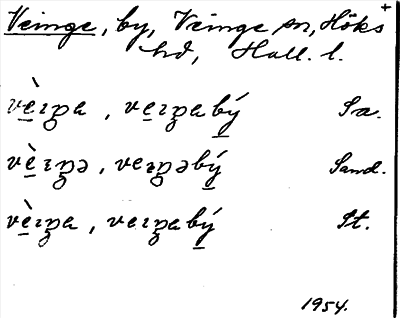 Veinge, by, Veinge sn, Höks +
hd, Hall. l.
vèrŋa , verŋabý Sa.
vèrŋə , verŋəbý Sand.
vèrŋa , verŋabý St.
1954.